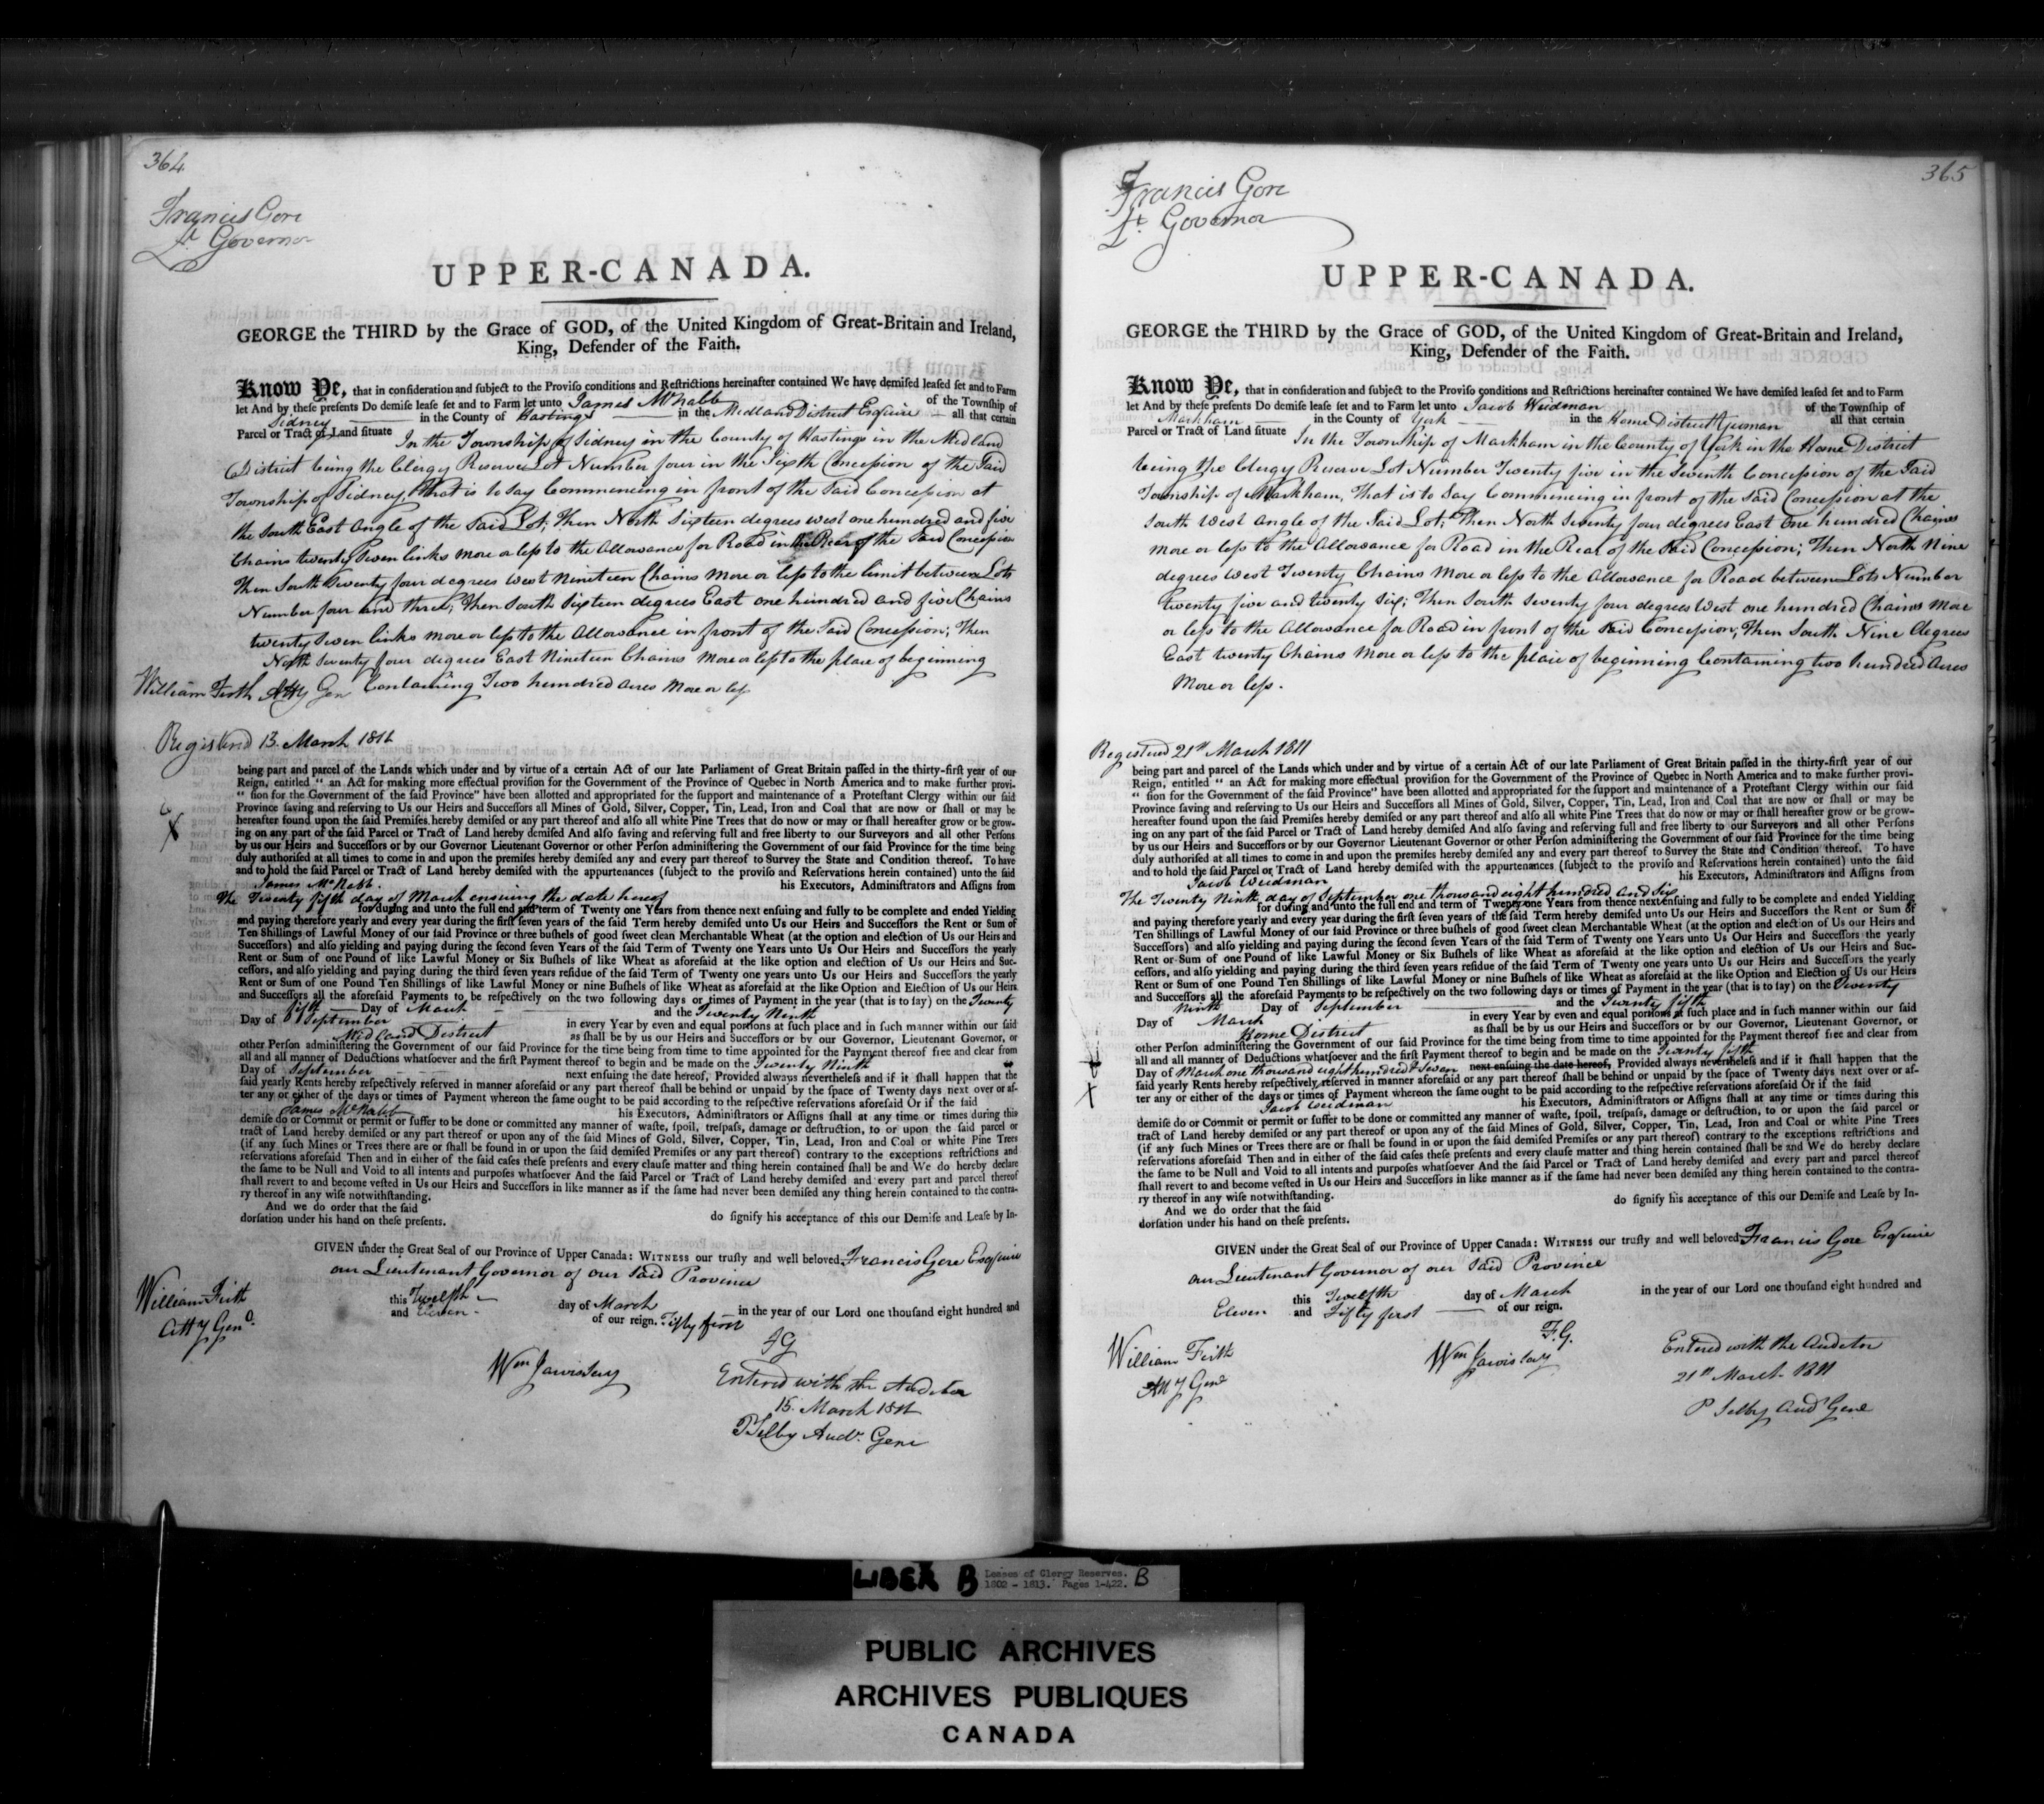 364
Francis Gore
Lt Governor
UPPER-CANADA.
GEORGE the THIRD by the Grace of GOD, of the United Kingdom of Great-Britain and Ireland,
King, Defender of the Faith.
Know Ye, that in conſideration and ſubject to the Proviſo conditions and Reſtrictions hereinafter contained We have demiſed leaſed ſet and to Farm
let And by theſe preſents Do demiſe leaſe ſet and to Farm let unto James McNabb of the Township of
Sidney in the County of Hastings in the Midland District Esquire all that certain
Parcel or Tract of Land ſituate In the Township of Sidney in the County of Hastings in the Midland
District being the Clergy Reserve Lot Number four in the Sixth Concession of the Said
Township of Sidney, that is to say Commencing in front of the Said Concession at
the South East Angle of the Said Lot; Then North Sixteen degrees west one hundred and five
Chains twenty Seven links more or less to the Allowance for Road in the Rear of the Said Concession
Then South Seventy four degrees West Nineteen Chains More or less to the limit between Lots
Number four and three; Then South Sixteen degrees East one hundred and five Chains
twenty Seven links more or less to the Allowance in front of the Said Concession; Then
North Seventy four degrees East Nineteen Chains More or less to the place of beginning
William Firth Atty Gen Containing Two hundred Acres More or less
Registered 13. March 1811
being part and parcel of the Lands which under and by virtue of a certain Act of our late Parliament of Great Britain paſſed in the thirty-firſt year of our
Reign, entitled “ an Act for making more effectual proviſion for the Government of the Province of Quebec in North America and to make further provi-
“ ſion for the Government of the ſaid Province” have been allotted and appropriated for the ſupport and maintenance of a Proteſtant Clergy within our ſaid
Province ſaving and reſerving to Us our Heirs and Succeſſors all Mines of Gold, Silver, Copper, Tin, Lead, Iron and Coal that are now or ſhall or may be
hereafter found upon the ſaid Premiſes hereby demiſed or any part thereof and alſo all white Pine Trees that do now or may or ſhall hereafter grow or be grow-
ing on any part of the ſaid Parcel or Tract of Land hereby demiſed And alſo ſaving and reſerving full and free liberty to our Surveyors and all other Perſons
by us our Heirs and Succeſſors or by our Governor Lieutenant Governor or other Perſon adminiſtering the Government of our ſaid Province for the time being
duly authoriſed at all times to come in and upon the premiſes hereby demiſed any and every part thereof to Survey the State and Condition thereof. To have
and to hold the ſaid Parcel or Tract of Land hereby demiſed with the appurtenances (ſubject to the proviſo and Reſervations herein contained) unto the ſaid
James McNabb. his Executors, Adminiſtrators and Aſſigns from
the Twenty fifth day of March ensuing the date hereof
for during and unto the full end and term of Twenty one Years from thence next enſuing and fully to be complete and ended Yielding
and paying therefore yearly and every year during the firſt ſeven years of the ſaid Term hereby demiſed unto Us our Heirs and Succeſſors the Rent or Sum of
Ten Shillings of Lawful Money of our ſaid Province or three buſhels of good ſweet clean Merchantable Wheat (at the option and election of Us our Heirs and
Succeſſors) and alſo yielding and paying during the ſecond ſeven Years of the ſaid Term of Twenty one Years unto Us Our Heirs and Succeſſors the yearly
Rent or Sum of one Pound of like Lawful Money or Six Buſhels of like Wheat as aforeſaid at the like option and election of Us our Heirs and Suc-
ceſſors, and alſo yielding and paying during the third ſeven years reſidue of the ſaid Term of Twenty one years unto Us our Heirs and Succeſſors the yearly
Rent or Sum of one Pound Ten Shillings of like Lawful Money or nine Buſhels of like Wheat as aforeſaid at the like Option and Election of Us our Heirs
and Succeſſors all the aforeſaid Payments to be reſpectively on the two following days or times of Payment in the year (that is to ſay) on the Twenty
fifth Day of March and the Twenty Ninth
Day of September in every Year by even and equal portions at ſuch place and in ſuch manner within our ſaid
Midland District as ſhall be by us our Heirs and Succeſſors or by our Governor, Lieutenant Governor, or
other Perſon adminiſtering the Government of our ſaid Province for the time being from time to time appointed for the Payment thereof free and clear from
all and all manner of Deductions whatſoever and the firſt Payment thereof to begin and be made on the Twenty Ninth
Day of September next enſuing the date hereof, Provided always nevertheleſs and if it ſhall happen that the
ſaid yearly Rents hereby reſpectively reſerved in manner aforeſaid or any part thereof ſhall be behind or unpaid by the ſpace of Twenty days next over or af-
ter any or either of the days or times of Payment whereon the ſame ought to be paid according to the reſpective reſervations aforeſaid Or if the ſaid
James McNabb his Executors, Adminiſtrators or Aſſigns ſhall at any time or times during this
demiſe do or Commit or permit or ſuffer to be done or committed any manner of waſte, ſpoil, treſpaſs, damage or deſtruction, to or upon the ſaid parcel or
tract of Land hereby demiſed or any part thereof or upon any of the ſaid Mines of Gold, Silver, Copper, Tin, Lead, Iron and Coal or white Pine Trees
(if any ſuch Mines or Trees there are or ſhall be found in or upon the ſaid demiſed Premiſes or any part thereof) contrary to the exceptions reſtrictions and
reſervations aforeſaid Then and in either of the ſaid caſes theſe preſents and every clauſe matter and thing herein contained ſhall be and We do hereby declare
the ſame to be Null and Void to all intents and purpoſes whatſoever And the ſaid Parcel or Tract of Land hereby demiſed and every part and parcel thereof
ſhall revert to and become veſted in Us our Heirs and Succeſſors in like manner as if the ſame had never been demiſed any thing herein contained to the contra-
ry thereof in any wiſe notwithſtanding.
And we do order that the ſaid do ſignify his acceptance of this our Demiſe and Leaſe by In-
dorſation under his hand on theſe preſents.
GIVEN under the Great Seal of our Province of Upper Canada: WITNESS our truſty and well beloved Francis Gore Esquire
our Lieutenant Governor of our Said Province
this Twelfth day of March in the year of our Lord one thouſand eight hundred and
and Eleven of our reign. Fifty first
William Firth
Atty Genl.
FG
Wm Jarvis Secy
Entered with the Auditor
15. March 1811
P Selby Audr. Genl
365
Francis Gore
Lt. Governor
UPPER-CANADA.
GEORGE the THIRD by the Grace of GOD, of the United Kingdom of Great-Britain and Ireland,
King, Defender of the Faith.
Know Ye, that in conſideration and ſubject to the Proviſo conditions and Reſtrictions hereinafter contained We have demiſed leaſed ſet and to Farm
let And by theſe preſents Do demiſe leaſe ſet and to Farm let unto Jacob Weidman of the Township of
Markham in the County of York in the Home District Yeoman all that certain
Parcel or Tract of Land ſituate In the Township of Markham in the County of York in the Home District
being the Clergy Reserve Lot Number Twenty five in the Seventh Concession of the Said
Township of Markham, That is to Say Commencing in front of the Said Concession at the
South West Angle of the Said Lot; Then North Seventy four degrees East One hundred Chains
more or less to the Allowance for Road in the Rear of the Said Concession; Then North Nine
degrees West Twenty Chains More or less to the Allowance for Road between Lots Number
Twenty five and twenty Six; Then South Seventy four degrees West one hundred Chains More
or less to the Allowance for Road in front of the Said Concession, Then South Nine degrees
East twenty Chains More or less to the place of beginning Containing two hundred Acres
More or less.
Registered 21st March 1811
being part and parcel of the Lands which under and by virtue of a certain Act of our late Parliament of Great Britain paſſed in the thirty-firſt year of our
Reign, entitled “ an Act for making more effectual proviſion for the Government of the Province of Quebec in North America and to make further provi-
“ ſion for the Government of the ſaid Province” have been allotted and appropriated for the ſupport and maintenance of a Proteſtant Clergy within our ſaid
Province ſaving and reſerving to Us our Heirs and Succeſſors all Mines of Gold, Silver, Copper, Tin, Lead, Iron and Coal that are now or ſhall or may be
hereafter found upon the ſaid Premiſes hereby demiſed or any part thereof and alſo all white Pine Trees that do now or may or ſhall hereafter grow or be grow-
ing on any part of the ſaid Parcel or Tract of Land hereby demiſed And alſo ſaving and reſerving full and free liberty to our Surveyors and all other Perſons
by us our Heirs and Succeſſors or by our Governor Lieutenant Governor or other Perſon adminiſtering the Government of our ſaid Province for the time being
duly authoriſed at all times to come in and upon the premiſes hereby demiſed any and every part thereof to Survey the State and Condition thereof. To have
and to hold the ſaid Parcel or Tract of Land hereby demiſed with the appurtenances (ſubject to the proviſo and Reſervations herein contained) unto the ſaid
Jacob Weidman his Executors, Adminiſtrators and Aſſigns from
The Twenty Ninth day of September one thousand eight hundred and Six
for during and unto the full end and term of Twenty one Years from thence next enſuing and fully to be complete and ended Yielding
and paying therefore yearly and every year during the firſt ſeven years of the ſaid Term hereby demiſed unto Us our Heirs and Succeſſors the Rent or Sum of
Ten Shillings of Lawful Money of our ſaid Province or three buſhels of good ſweet clean Merchantable Wheat (at the option and election of Us our Heirs and
Succeſſors) and alſo yielding and paying during the ſecond ſeven Years of the ſaid Term of Twenty one Years unto Us Our Heirs and Succeſſors the yearly
Rent or Sum of one Pound of like Lawful Money or Six Buſhels of like Wheat as aforeſaid at the like option and election of Us our Heirs and Suc-
ceſſors, and alſo yielding and paying during the third ſeven years reſidue of the ſaid Term of Twenty one years unto Us our Heirs and Succeſſors the yearly
Rent or Sum of one Pound Ten Shillings of like Lawful Money or nine Buſhels of like Wheat as aforeſaid at the like Option and Election of Us our Heirs
and Succeſſors all the aforeſaid Payments to be reſpectively on the two following days or times of Payment in the year (that is to ſay) on the Twenty
Ninth Day of September and the Twenty fifth
Day of March in every Year by even and equal portions at ſuch place and in ſuch manner within our ſaid
Home District as ſhall be by us our Heirs and Succeſſors or by our Governor, Lieutenant Governor, or
other Perſon adminiſtering the Government of our ſaid Province for the time being from time to time appointed for the Payment thereof free and clear from
all and all manner of Deductions whatſoever and the firſt Payment thereof to begin and be made on the Twenty fifth
Day of March one thousand eight hundred & Seven next enſuing the date hereof, Provided always nevertheleſs and if it ſhall happen that the
ſaid yearly Rents hereby reſpectively reſerved in manner aforeſaid or any part thereof ſhall be behind or unpaid by the ſpace of Twenty days next over or af-
ter any or either of the days or times of Payment whereon the ſame ought to be paid according to the reſpective reſervations aforeſaid Or if the ſaid
Jacob Weidman his Executors, Adminiſtrators or Aſſigns ſhall at any time or times during this
demiſe do or Commit or permit or ſuffer to be done or committed any manner of waſte, ſpoil, treſpaſs, damage or deſtruction, to or upon the ſaid parcel or
tract of Land hereby demiſed or any part thereof or upon any of the ſaid Mines of Gold, Silver, Copper, Tin, Lead, Iron and Coal or white Pine Trees
(if any ſuch Mines or Trees there are or ſhall be found in or upon the ſaid demiſed Premiſes or any part thereof) contrary to the exceptions reſtrictions and
reſervations aforeſaid Then and in either of the ſaid caſes theſe preſents and every clauſe matter and thing herein contained ſhall be and We do hereby declare
the ſame to be Null and Void to all intents and purpoſes whatſoever And the ſaid Parcel or Tract of Land hereby demiſed and every part and parcel thereof
ſhall revert to and become veſted in Us our Heirs and Succeſſors in like manner as if the ſame had never been demiſed any thing herein contained to the contra-
ry thereof in any wiſe notwithſtanding.
And we do order that the ſaid do ſignify his acceptance of this our Demiſe and Leaſe by In-
dorſation under his hand on theſe preſents.
GIVEN under the Great Seal of our Province of Upper Canada: WITNESS our truſty and well beloved Francis Gore Esquire
our Lieutenant Governor of our Said Province
this Twelfth day of March in the year of our Lord one thouſand eight hundred and
Eleven and Fifty first of our reign.
F.G.
William Firth
Atty Genl
Wm Jarvis Secy
Entered with the Auditor
21st March 1811
P Selby Audr Genl
LIBER B Leases of Clergy Reserves. B
1802 - 1813. Pages 1-422.
PUBLIC ARCHIVES
ARCHIVES PUBLIQUES
CANADA